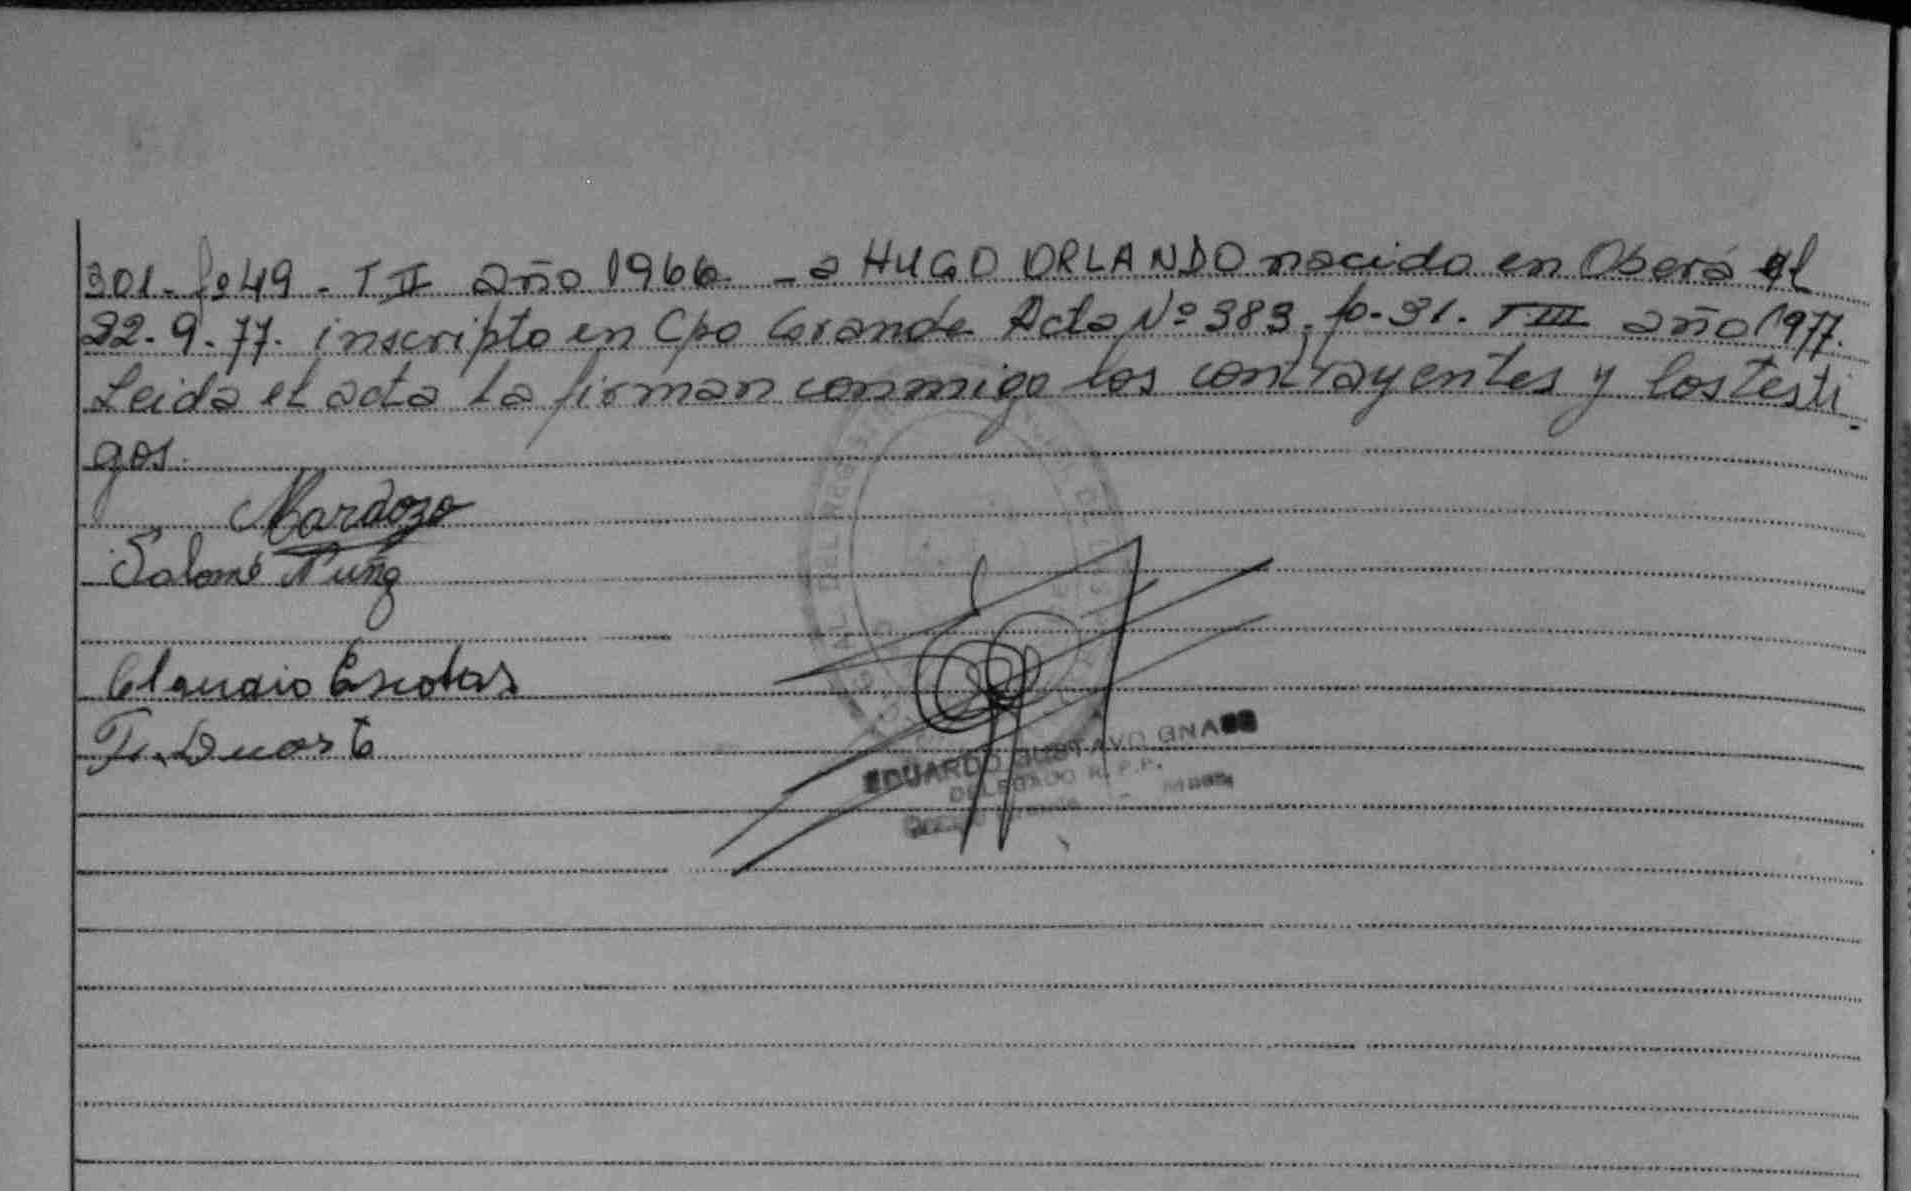 301- fº 49 - T II año 1966 - a HUGO ORLANDO nacido en Oberá el
22-9-77. inscripto en Cpo Grande Acta Nº 383. fº-31. T III año 1977.
Leida el acta la firman conmigo los contrayentes y los testi-
gos.
Mardozo
Salomé Nuñz
Claudio Escobar
F. Duarte
EDUARDO GUSTAVO GNASS
DELEGADO R. P. P.